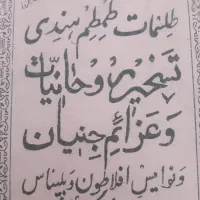 طلسمات طمطم هندی
تسخیر روحانیات
وعزائم جنیان
ونوامیس افلاطون وبلیناس